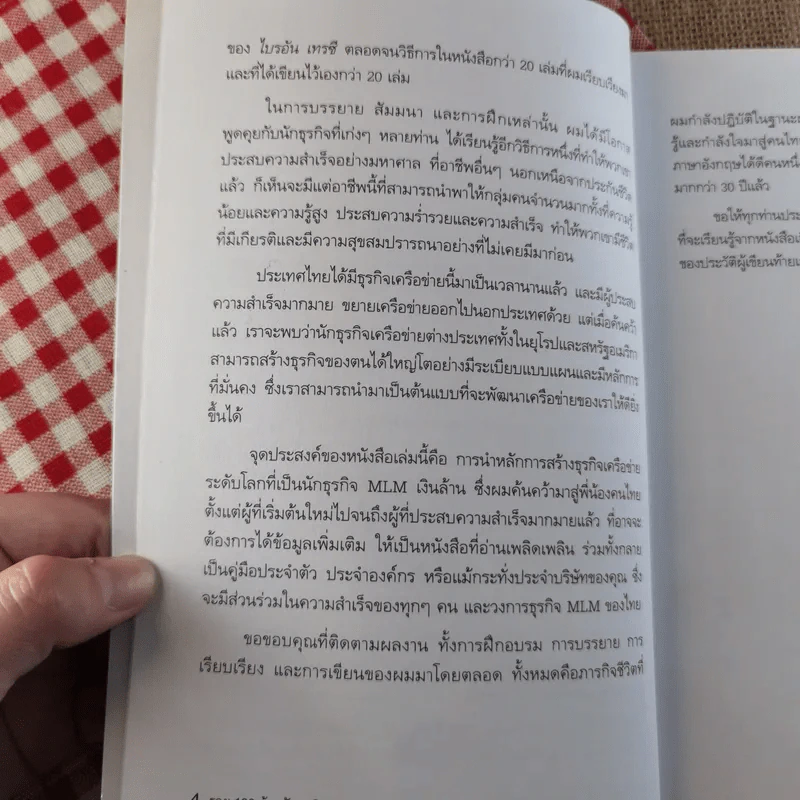 ของ ไบรอัน เทรซี ตลอดจนวิธีการในหนังสือกว่า 20 เล่มที่ผมเรียบเรียงมา
และที่ได้เขียนไว้เองกว่า 20 เล่ม
ในการบรรยาย สัมมนา และการฝึกเหล่านั้น ผมได้มีโอกาส
พูดคุยกับนักธุรกิจที่เก่งๆ หลายท่าน ได้เรียนรู้อีกวิธีการหนึ่งที่ทำให้พวกเขา
ประสบความสำเร็จอย่างมหาศาล ที่อาชีพอื่นๆ นอกเหนือจากประกันชีวิต
แล้ว ก็เห็นจะมีแต่อาชีพนี้ที่สามารถนำพาให้กลุ่มคนจำนวนมากทั้งที่ความรู้
น้อยและความรู้สูง ประสบความร่ำรวยและความสำเร็จ ทำให้พวกเขามีชีวิต
ที่มีเกียรติและมีความสุขสมปรารถนาอย่างที่ไม่เคยมีมาก่อน
ประเทศไทยได้มีธุรกิจเครือข่ายนี้มาเป็นเวลานานแล้ว และมีผู้ประสบ
ความสำเร็จมากมาย ขยายเครือข่ายออกไปนอกประเทศด้วย แต่เมื่อค้นคว้า
แล้ว เราจะพบว่านักธุรกิจเครือข่ายต่างประเทศทั้งในยุโรปและสหรัฐอเมริกา
สามารถสร้างธุรกิจของตนได้ใหญ่โตอย่างมีระเบียบแบบแผนและมีหลักการ
ที่มั่นคง ซึ่งเราสามารถนำมาเป็นต้นแบบที่จะพัฒนาเครือข่ายของเราให้ดียิ่ง
ขึ้นได้
จุดประสงค์ของหนังสือเล่มนี้คือ การนำหลักการสร้างธุรกิจเครือข่าย
ระดับโลกที่เป็นนักธุรกิจ MLM เงินล้าน ซึ่งผมค้นคว้ามาสู่พี่น้องคนไทย
ตั้งแต่ผู้ที่เริ่มต้นใหม่ไปจนถึงผู้ที่ประสบความสำเร็จมากมายแล้ว ที่อาจจะ
ต้องการได้ข้อมูลเพิ่มเติม ให้เป็นหนังสือที่อ่านเพลิดเพลิน ร่วมทั้งกลาย
เป็นคู่มือประจำตัว ประจำองค์กร หรือแม้กระทั่งประจำบริษัทของคุณ ซึ่ง
จะมีส่วนร่วมในความสำเร็จของทุกๆ คน และวงการธุรกิจ MLM ของไทย
ขอขอบคุณที่ติดตามผลงาน ทั้งการฝึกอบรม การบรรยาย การ
เรียบเรียง และการเขียนของผมมาโดยตลอด ทั้งหมดคือภารกิจชีวิตที่
4
ผมกำลังปฏิบัติในฐานะ
รู้และกำลังใจมาสู่คนไทย
ภาษาอังกฤษได้ดีคนหนึ่ง
มากกว่า 30 ปีแล้ว
ขอให้ทุกท่านประ
ที่จะเรียนรู้จากหนังสือ
ของประวัติผู้เขียนท้าย